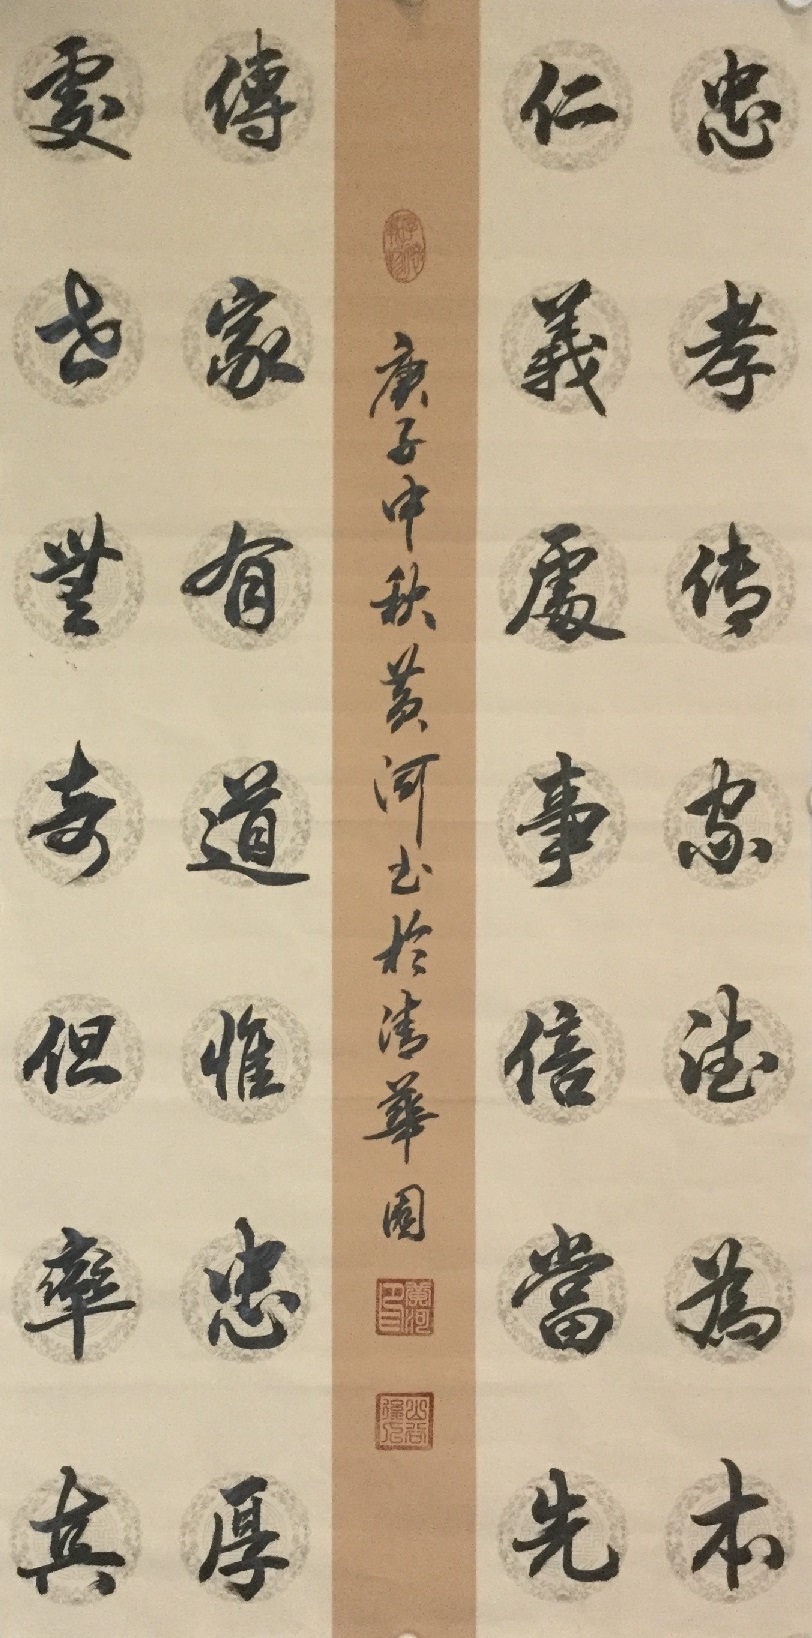 忠孝传家德為本
仁義處事信當先
庚子中秋黄河书於清華園
黄河
傳家有道惟忠厚
處世無奇但率真